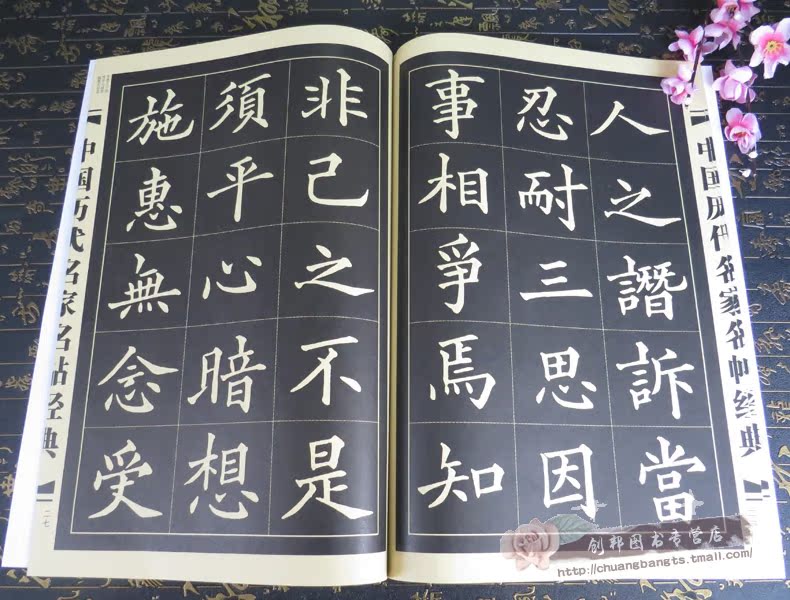 中国历代名家名帖经典
人之譖訴當
忍耐三思因
事相爭焉知
非己之不是
須平心暗想
施惠無念受
中国历代名家名帖经典
二七
创邦图书专营店
http://chuangbangts.tmall.com/